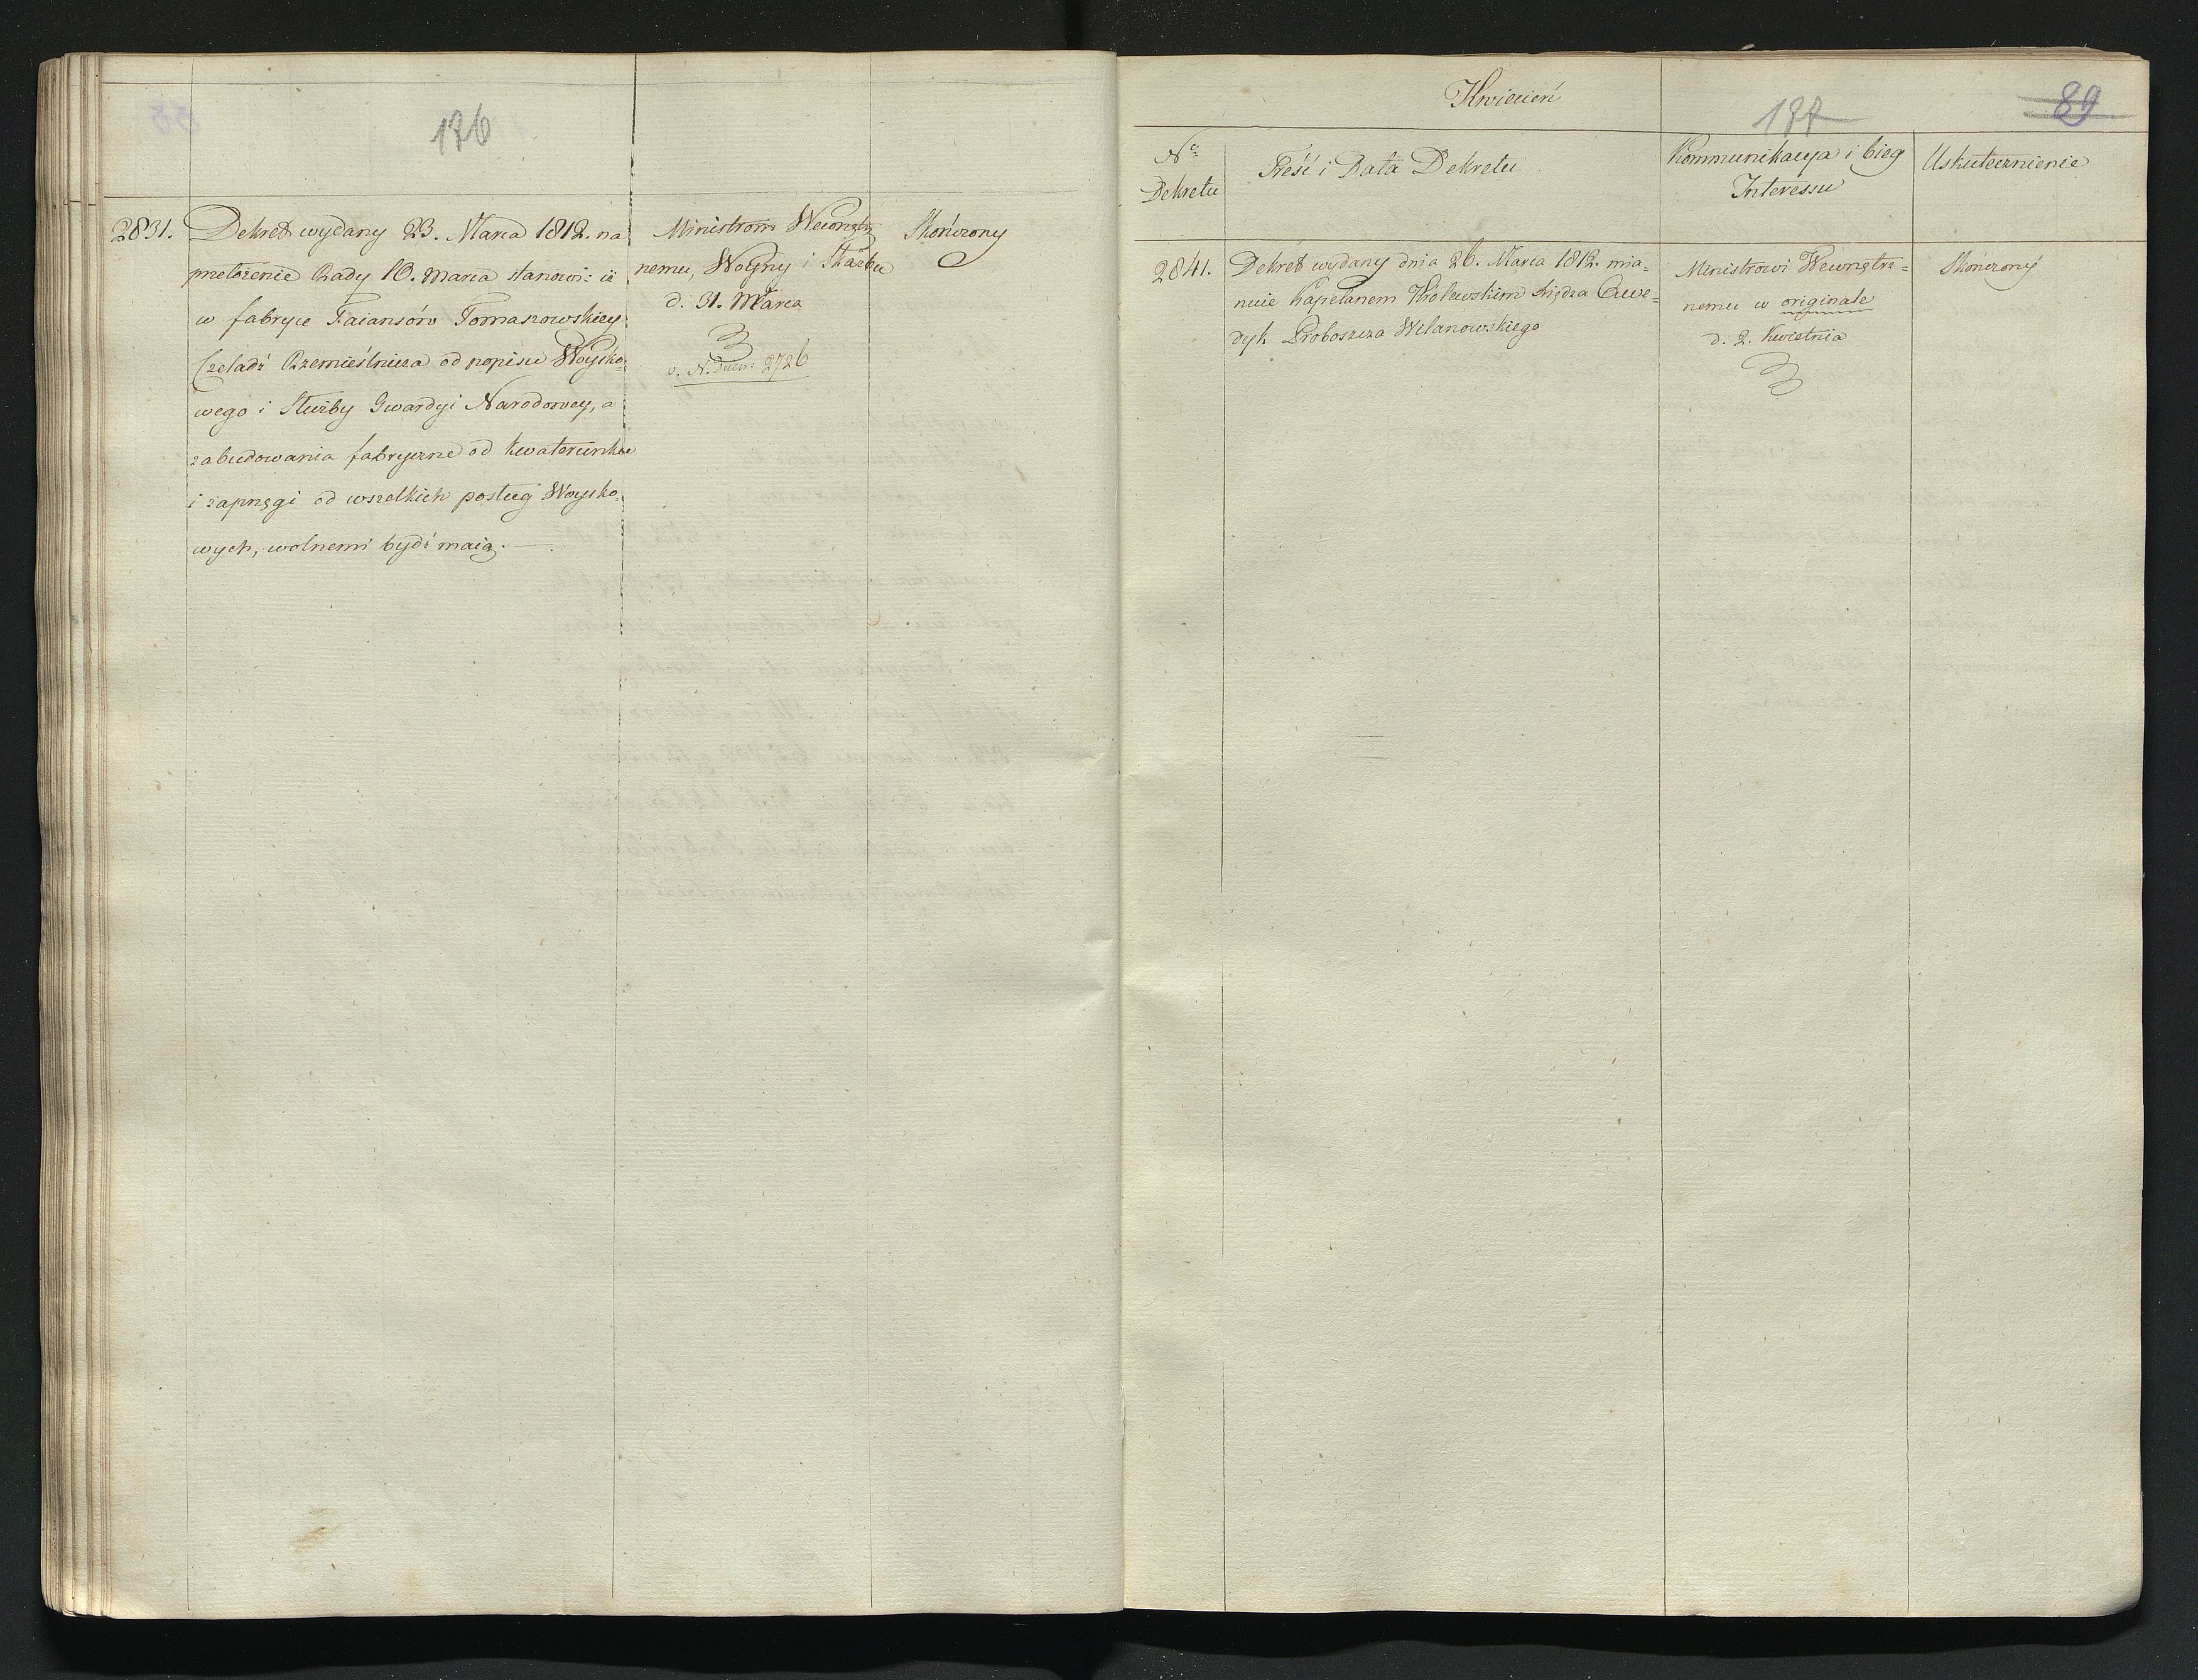 176
2831.
Dekret wydany 23. Marca 1812. na
przełożenie Rady 10. Marca stanowi: iż
w fabryce Faiansów Tomaszowskiey
Czeladź Rzemieślnicza od popisu Woysko-
wego i Służby Gwardyi Narodowey, a
zabudowania fabryczne od kwaterunków
i zaprzęgi od wszelkich posług Woysko-
wych, wolnemi bydź maią. —
Ministrom Wewnętrz
nemu, Woyny i Skarbu
d. 31. Marca
v. N. 2726
Skończony
Kwiecień
177
89
No
Dekretu
Treść i Data Dekretu
Kommunikacya i bieg
Interessu
Uskutecznienie
2841.
Dekret wydany dnia 26. Marca 1812. mia=
nuie Kapelanem Królewskim Xiędza
Proboszcza Wilanowskiego
Ministrowi Wewnętrz=
nemu w originale
d. 2. Kwietnia
Skończony